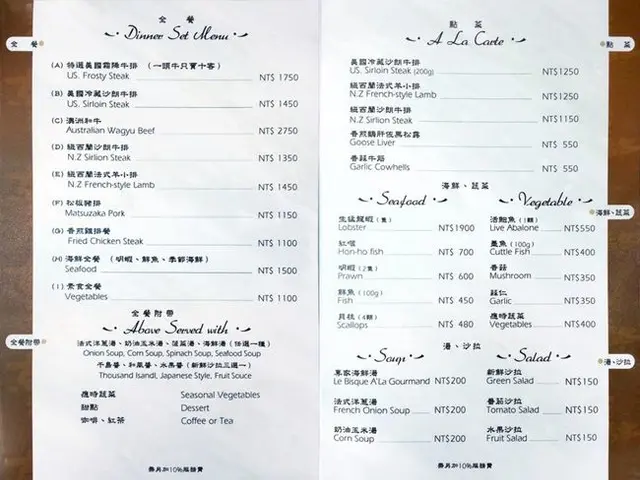 全餐
Dinner Set Menu
全餐
(A) 特選美國霜降牛排 (一頭牛只賣十客)
US. Frosty Steak NT$ 1750
(B) 美國冷藏沙朗牛排
US. Sirloin Steak NT$ 1450
(C) 澳洲和牛
Australian Wagyu Beef NT$ 2750
(D) 紐西蘭沙朗牛排
N.Z Sirlion Steak NT$ 1350
(E) 紐西蘭法式羊小排
N.Z French-style Lamb NT$ 1450
(F) 松板豬排
Matsuzaka Pork NT$ 1150
(G) 香煎雞排餐
Fried Chicken Steak NT$ 1100
(H) 海鮮全餐 (明蝦、鮮魚、季節海鮮)
Seafood NT$ 1500
(I) 素食全餐
Vegetables NT$ 1100
全餐附帶
Above Served with
全餐附帶
法式洋蔥湯、奶油玉米湯、菠菜湯、海鮮湯 (任選一種)
Onion Soup, Corn Soup, Spinach Soup, Seafood Soup
千島醬、和風醬、水果醬 (新鮮沙拉三選一)
Thousand Isandl, Japanese Style, Fruit Souce
應時蔬菜 Seasonal Vegetables
甜點 Dessert
咖啡、紅茶 Coffee or Tea
需另加10%服務費
點菜
A La Carte
點菜
美國冷藏沙朗牛排
US. Sirloin Steak (200g) NT$1250
紐西蘭法式羊小排
N.Z French-style Lamb NT$1250
紐西蘭沙朗牛排
N.Z Sirlion Steak NT$1150
香煎鵝肝佐黑松露
Goose Liver NT$ 550
香蒜牛筋
Garlic Cowhells NT$ 550
海鮮、蔬菜
Seafood Vegetable
海鮮、蔬菜
生猛龍蝦 (隻)
Lobster NT$1900
紅喉
Hon-ho fish NT$ 700
明蝦 (2隻)
Prawn NT$ 600
鮮魚 (100g)
Fish NT$ 450
貝柱 (4顆)
Scallops NT$ 480
活鮑魚 (1顆)
Live Abalone NT$550
墨魚 (100g)
Cuttle Fish NT$400
香菇
Mushroom NT$350
蒜仁
Garlic NT$350
應時蔬菜
Vegetables NT$400
湯、沙拉
Soup Salad
湯、沙拉
專家海鮮湯
Le Bisque A'La Gourmand NT$200
法式洋蔥湯
French Onion Soup NT$200
奶油玉米湯
Corn Soup NT$200
新鮮沙拉
Green Salad NT$150
番茄沙拉
Tomato Salad NT$150
水果沙拉
Fruit Salad NT$150
需另加10%服務費